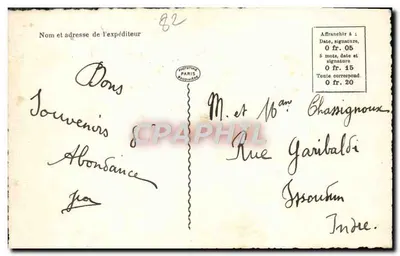 82
Nom et adresse de l'expéditeur
Affranchir à :
Date, signature,
0 fr. 05
5 mots, date et
signature
0 fr. 15
Toute correspond
0 fr. 20
PARIS
CPARAMA
Bons
Souvenirs d'
Abondance
M. et Man Chassignoux
Rue Garibaldi
Issoudun
Indre.